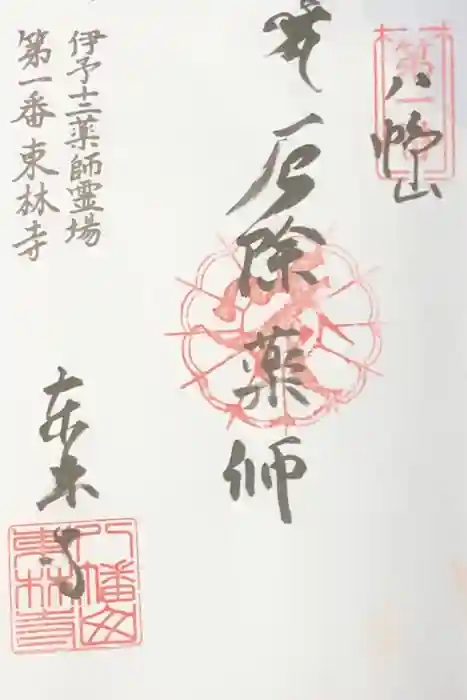 八幡山
第一番
厄除薬師
伊予十二薬師霊場
第一番東林寺
東林寺
八幡山
東林寺